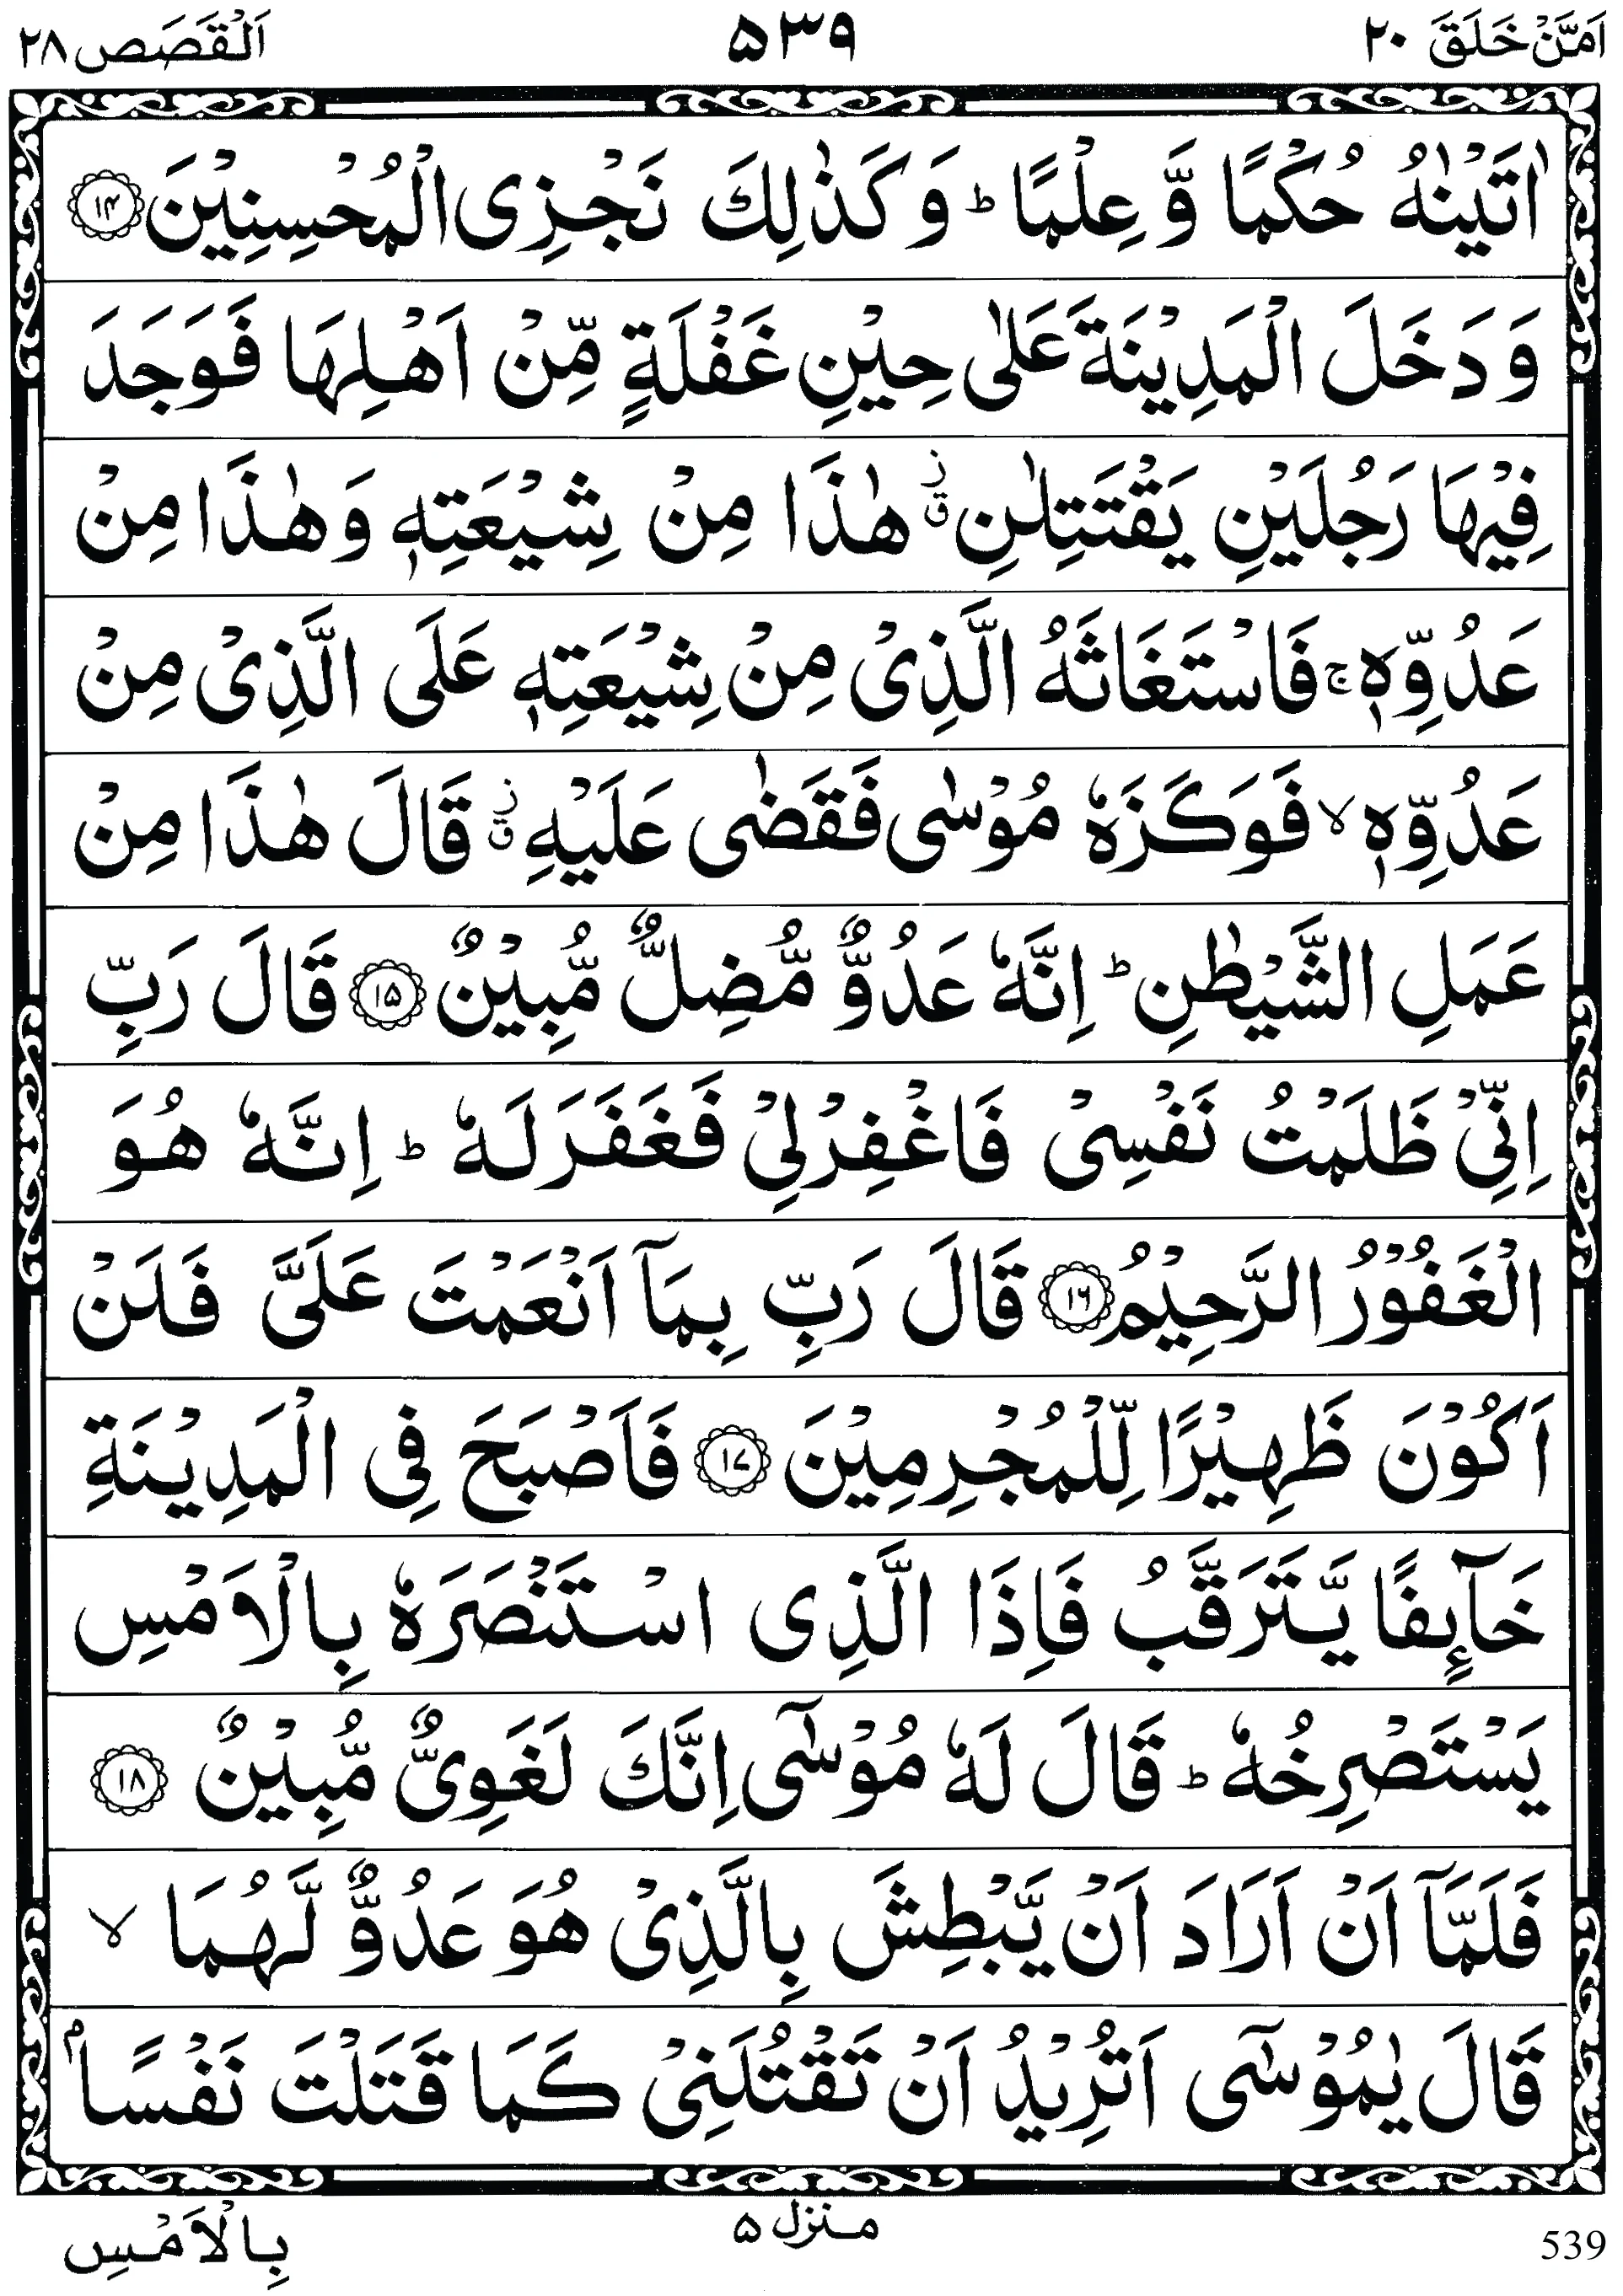 اَمَّنْ خَلَقَ ٢٠
۵۳۹
اَلْقَصَص ٢٨
اٰتَيْنٰهُ حُكْمًا وَّ عِلْمًا ؕ وَ كَذٰلِكَ نَجْزِى الْمُحْسِنِيْنَ ۱۴
وَ دَخَلَ الْمَدِيْنَةَ عَلٰى حِيْنِ غَفْلَةٍ مِّنْ اَهْلِهَا فَوَجَدَ
فِيْهَا رَجُلَيْنِ يَقْتَتِلٰنِ ۗ ز هٰذَا مِنْ شِيْعَتِهٖ وَهٰذَا مِنْ
عَدُوِّهٖ ۚ فَاسْتَغَاثَهُ الَّذِىْ مِنْ شِيْعَتِهٖ عَلَى الَّذِىْ مِنْ
عَدُوِّهٖ ۙ فَوَكَزَهٗ مُوْسٰى فَقَضٰى عَلَيْهِ ۗ ز قَالَ هٰذَا مِنْ
عَمَلِ الشَّيْطٰنِ ؕ اِنَّهٗ عَدُوٌّ مُّضِلٌّ مُّبِيْنٌ ۱۵ قَالَ رَبِّ
اِنِّىْ ظَلَمْتُ نَفْسِىْ فَاغْفِرْلِىْ فَغَفَرَ لَهٗ ؕ اِنَّهٗ هُوَ
الْغَفُوْرُ الرَّحِيْمُ ۱۶ قَالَ رَبِّ بِمَاۤ اَنْعَمْتَ عَلَىَّ فَلَنْ
اَكُوْنَ ظَهِيْرًا لِّلْمُجْرِمِيْنَ ۱۷ فَاَصْبَحَ فِى الْمَدِيْنَةِ
خَآئِفًا يَّتَرَقَّبُ فَاِذَا الَّذِى اسْتَنْصَرَهٗ بِالْاَمْسِ
يَسْتَصْرِخُهٗ ؕ قَالَ لَهٗ مُوْسٰۤى اِنَّكَ لَغَوِىٌّ مُّبِيْنٌ ۱۸
فَلَمَّاۤ اَنْ اَرَادَ اَنْ يَّبْطِشَ بِالَّذِىْ هُوَ عَدُوٌّ لَّهُمَا ۙ
قَالَ يٰمُوْسٰۤى اَتُرِيْدُ اَنْ تَقْتُلَنِىْ كَمَا قَتَلْتَ نَفْسًۢا
بِالْاَمْسِ
منزل ۵
539